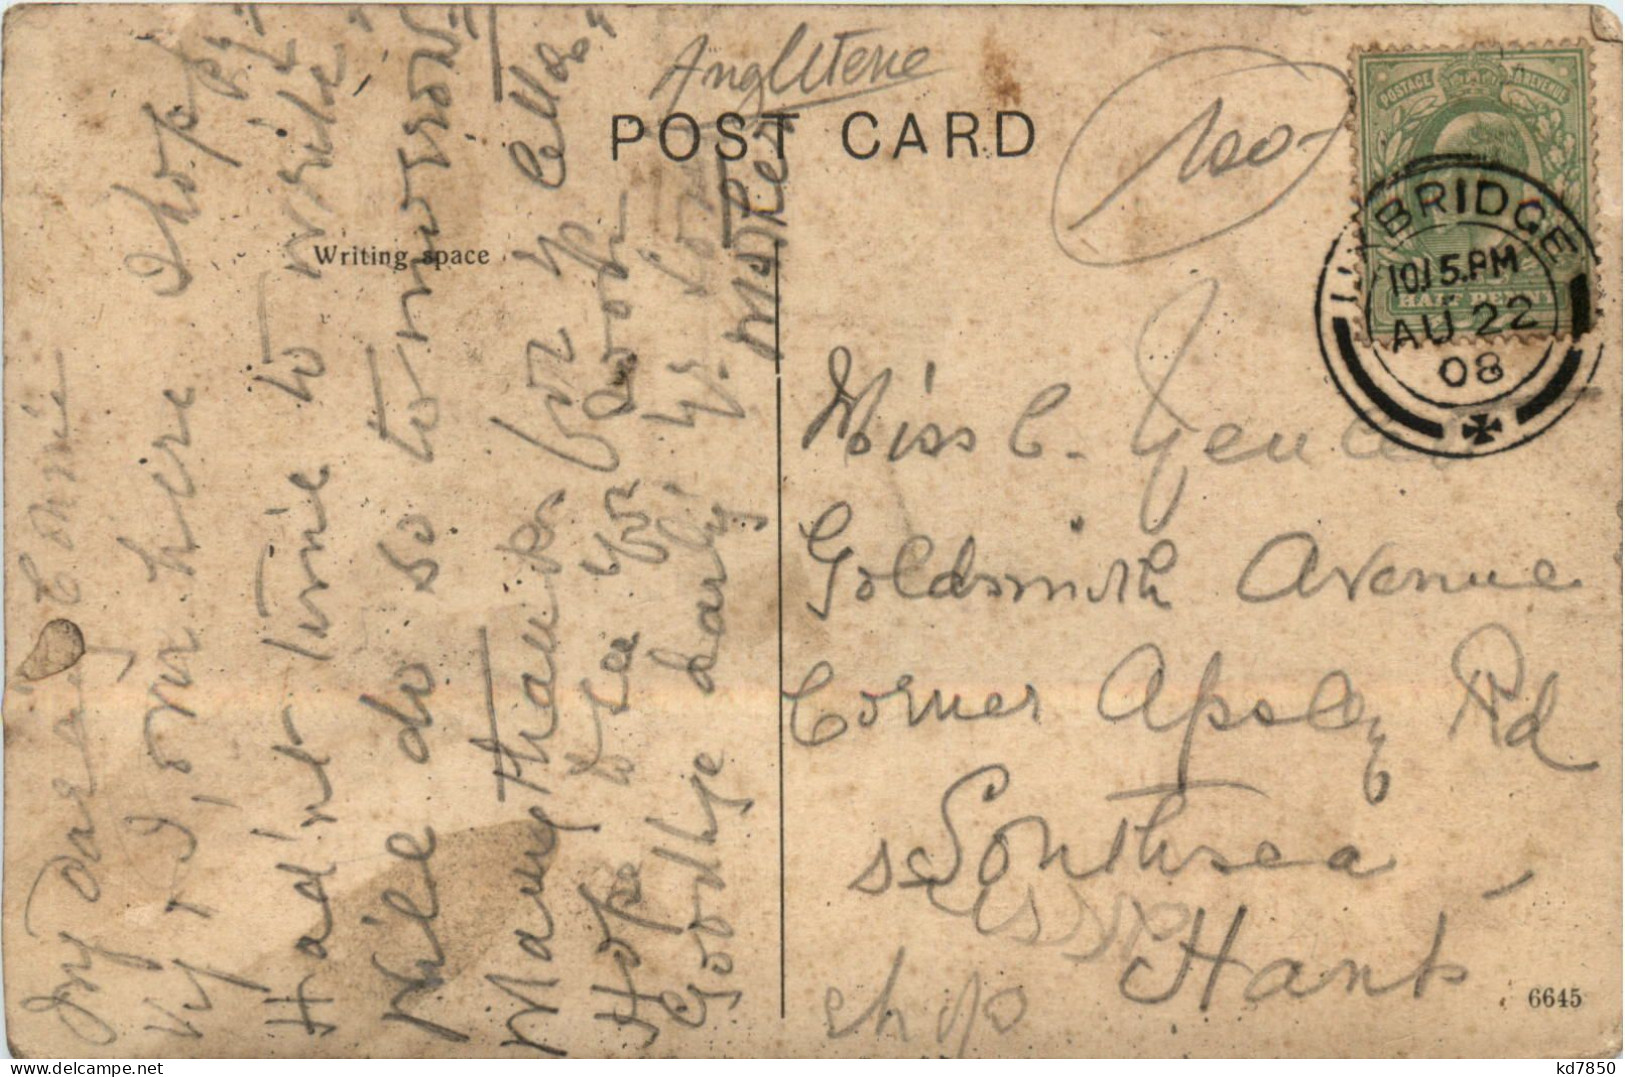 Angleterre
POST CARD
100-
POSTAGE REVENUE
HALF PENNY
UXBRIDGE
10.15.PM
AU 22
08
Writing space
My Dear
here I hope
Had'nt time to write
will do so tomorrow
Many thanks for yr p
Hope to see yr soon
Goodbye darly yr
Mother
Miss C.
Goldsmith Avenue
Corner Apsley Rd
Southsea
Hants
6645
kd7850